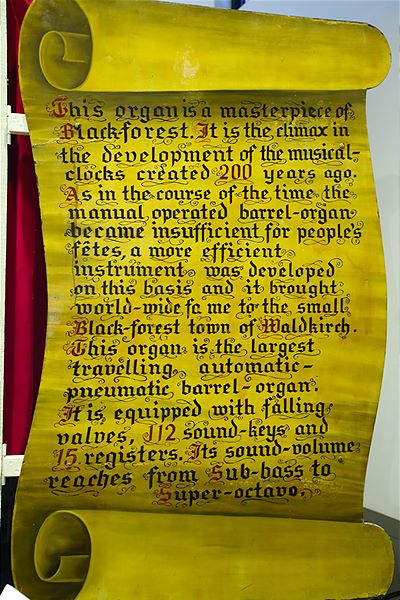 This organ is a masterpiece of
Black-forest. It is the climax in
the development of the musical-
clocks created 200 years ago.
As in the course of the time the
manual operated barrel-organ
became insufficient for people's
fêtes, a more efficient
instrument was developed
on this basis and it brought
world-wide fame to the small
Black-forest town of Waldkirch.
This organ is the largest
travelling automatic-
pneumatic barrel-organ.
It is equipped with falling
valves, 112 sound-keys and
15 registers. Its sound-volume
reaches from Sub-bass to
Super-octavo.